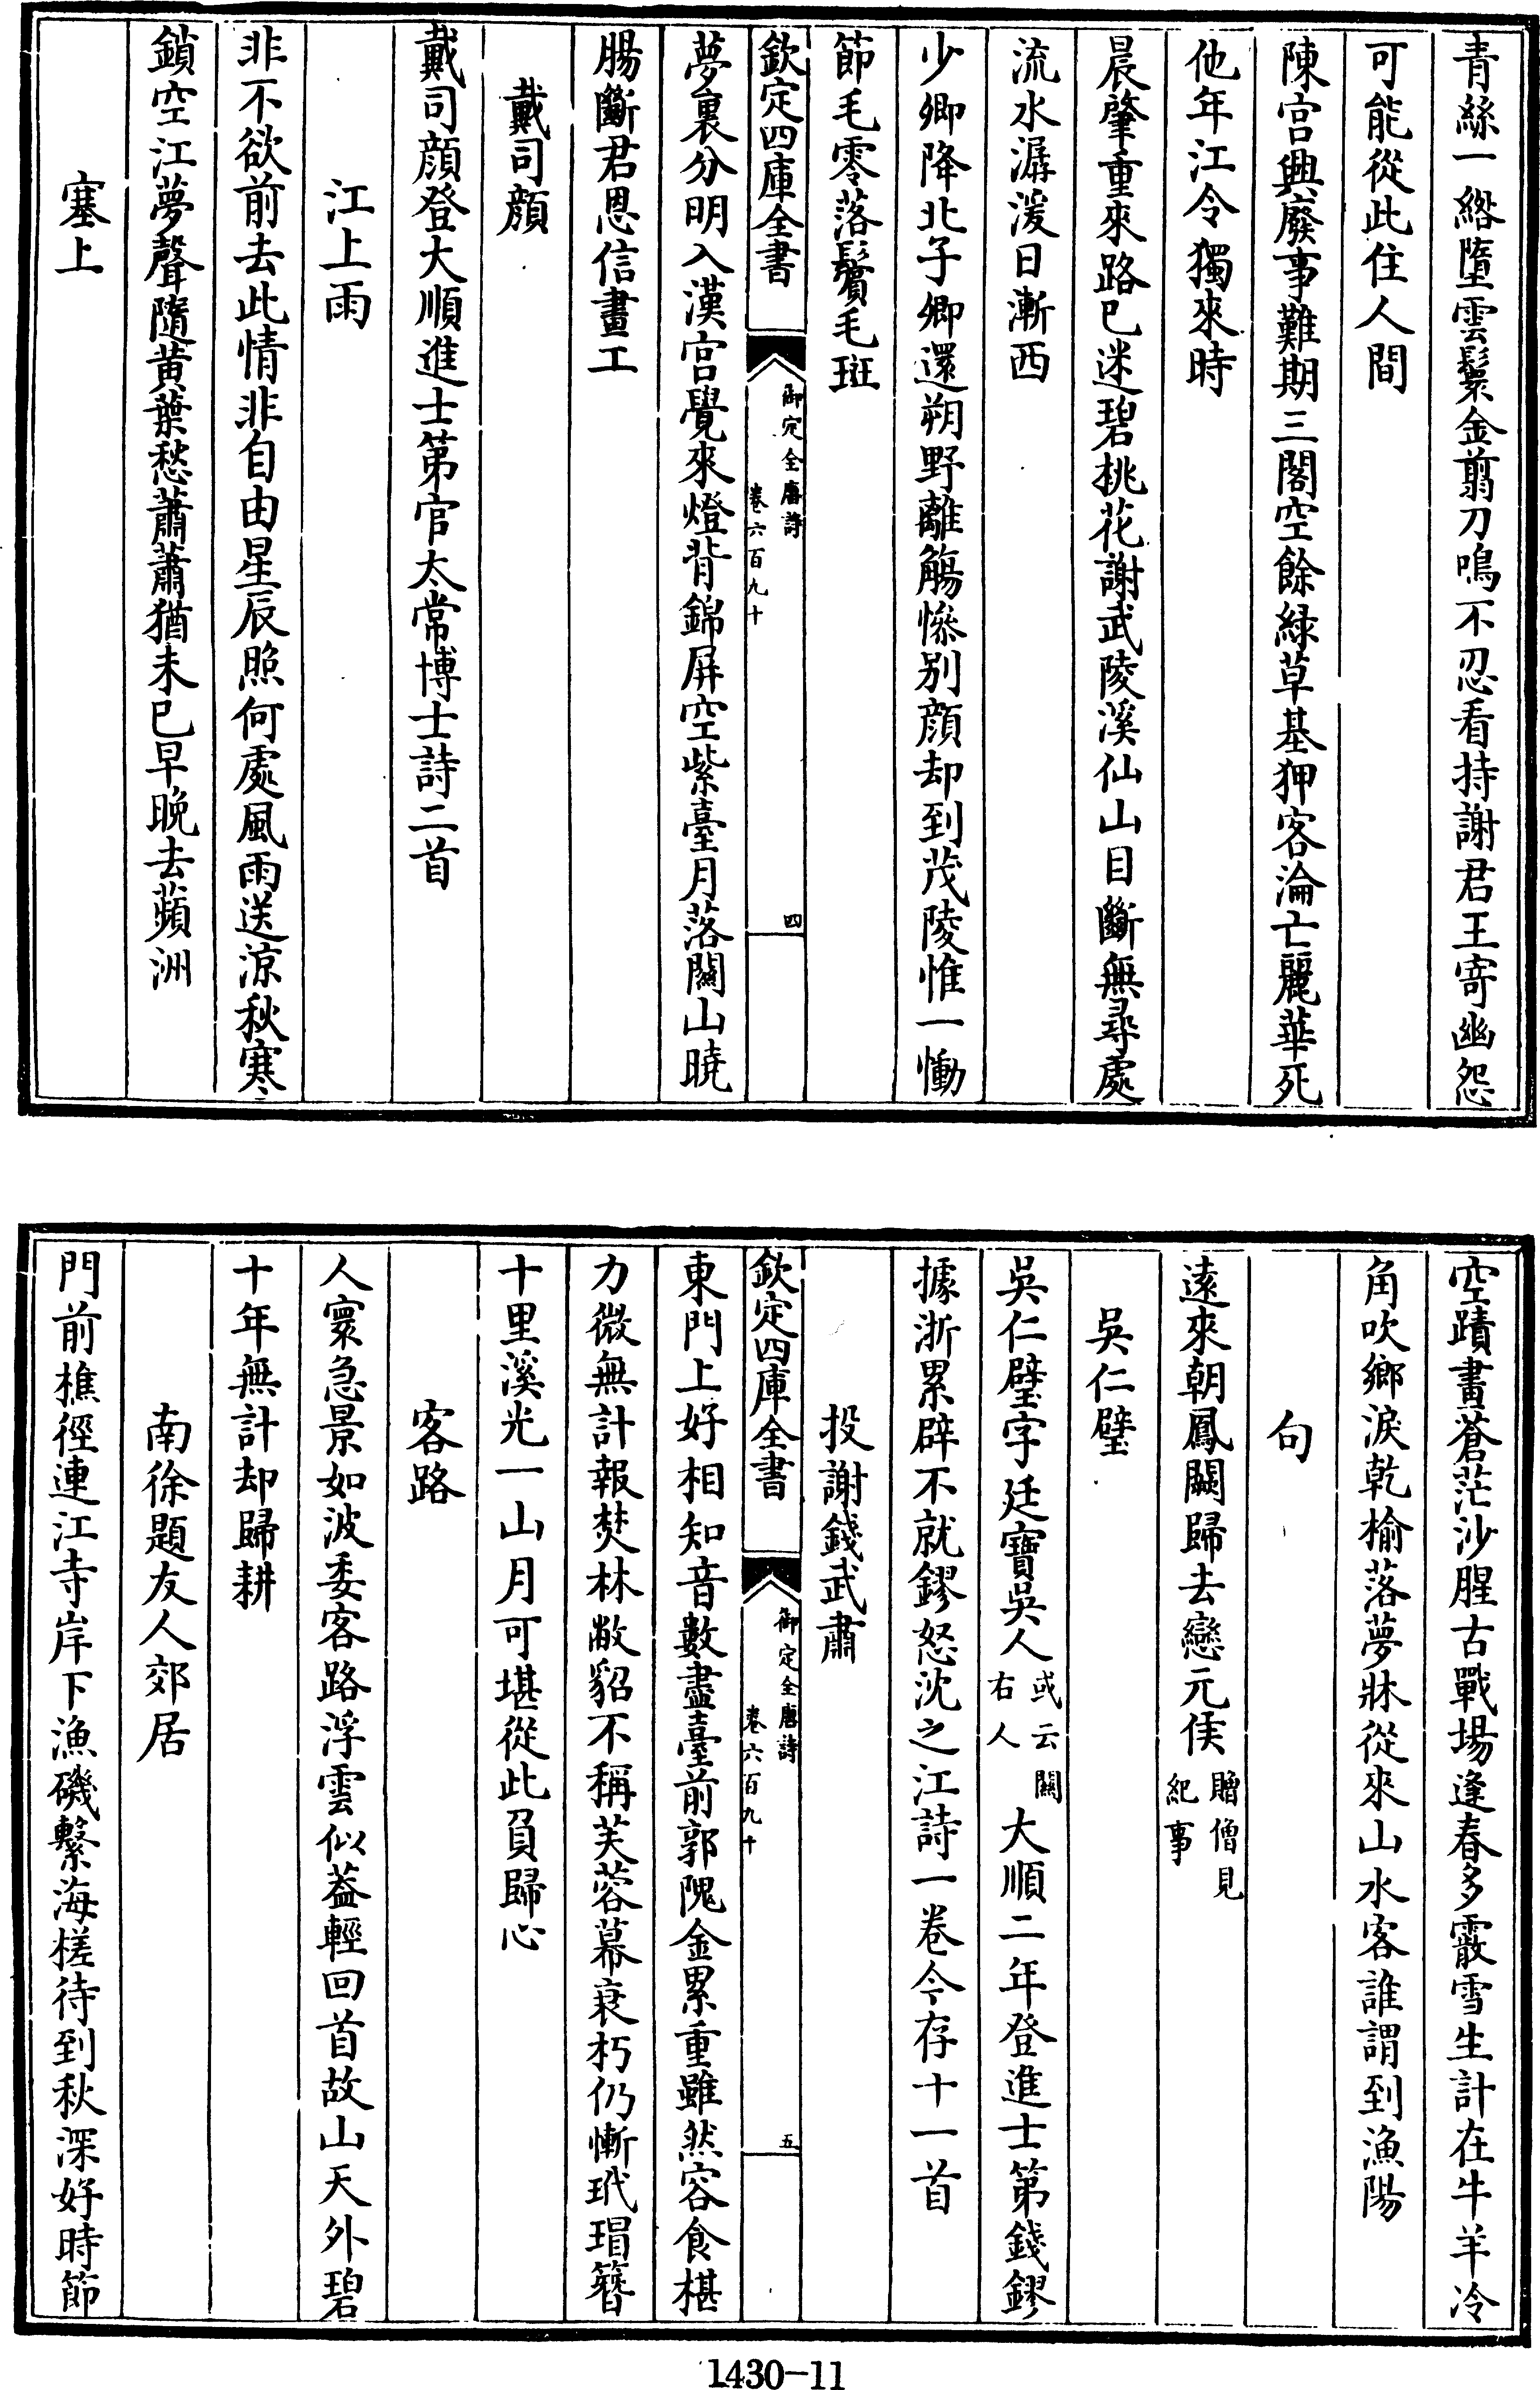 青絲一綹墮雲鬟金翦刀鳴不忍看持謝君王寄幽怨
可能從此住人間
陳宮興廢事難期三閣空餘緑草基狎客淪亡麗華死
他年江令獨來時
晨肇重來路已迷碧桃花謝武陵溪仙山目斷無尋處
流水潺湲日漸西
少卿降北子卿還朔野離觴慘别顔却到茂陵惟一慟
節毛零落鬢毛斑
欽定四庫全書
御定全唐詩
卷六百九十
四
夢裏分明入漢宮覺來燈背錦屏空紫臺月落關山曉
腸斷君恩信畫工
戴司顔
戴司顔登大順進士第官太常博士詩二首
江上雨
非不欲前去此情非自由星辰照何處風雨送凉秋寒
鎖空江夢聲隨黄葉愁蕭蕭猶未已早晚去蘋洲
塞上
空蹟晝蒼茫沙腥古戰場逢春多霰雪生計在牛羊冷
角吹鄉淚乾榆落夢牀從來山水客誰謂到漁陽
句
遠來朝鳳闕歸去戀元侯贈僧見紀事
吳仁璧
吳仁璧字廷寶吳人或云關右人大順二年登進士第錢鏐
據浙累辟不就鏐怒沈之江詩一卷今存十一首
投謝錢武肅
欽定四庫全書
御定全唐詩
卷六百九十
五
東門上好相知音數盡臺前郭隗金累重雖然容食椹
力微無計報焚林敝貂不稱芙蓉幕衰朽仍慚玳瑁簪
十里溪光一山月可堪從此負歸心
客路
人寰急景如波委客路浮雲似葢輕回首故山天外碧
十年無計却歸耕
南徐題友人郊居
門前樵徑連江寺岸下漁磯繫海槎待到秋深好時節
1430-11